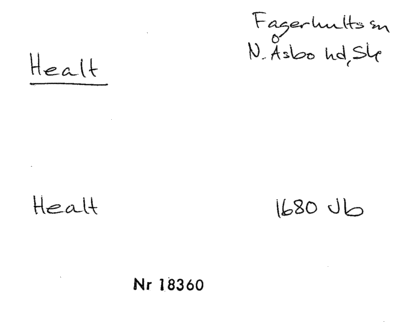 Fagerhults sn
N. Åsbo hd, Sk
Healt
Healt 1680 Jb
Nr 18360